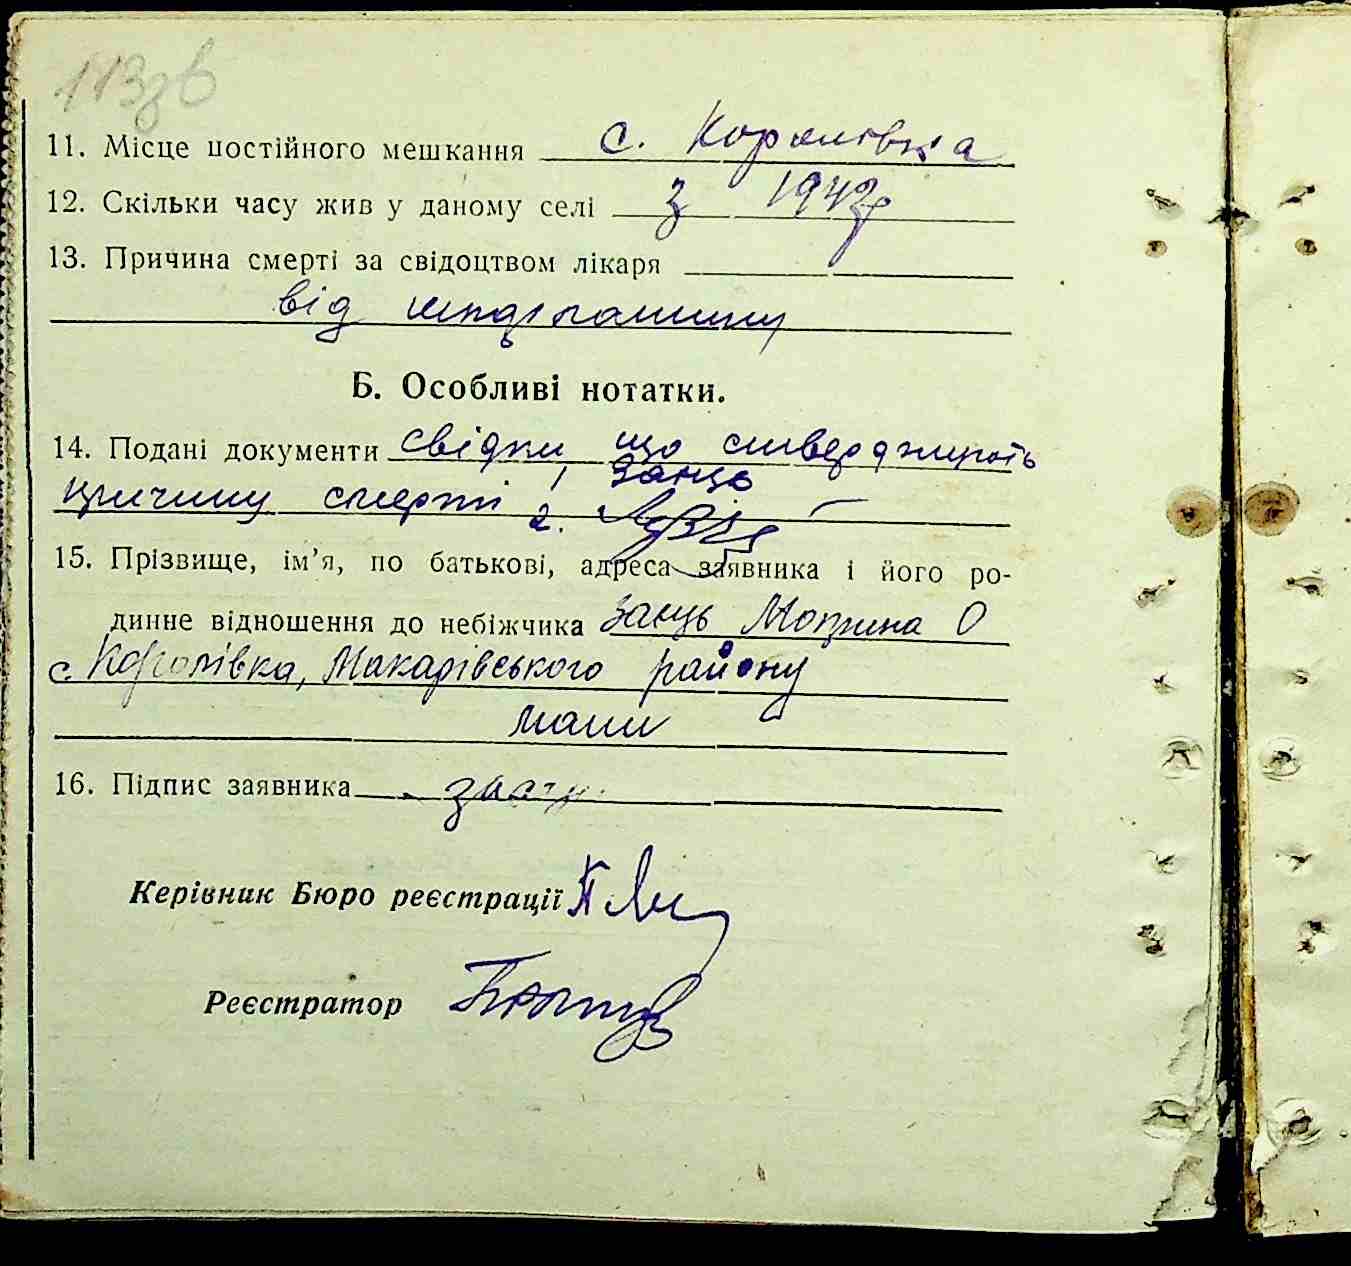 113зв
11. Місце постійного мешкання с. Королівка
12. Скільки часу жив у даному селі з 1943р
13. Причина смерті за свідоцтвом лікаря
від
Б. Особливі нотатки.
14. Подані документи свідки що стверджують
причину смерті 1. Заяць
2.
15. Прізвище, ім’я, по батькові, адреса заявника і його ро-
динне відношення до небіжчика Заяць Мотрина О
с. Королівка, Макарівського району
мати
16. Підпис заявника
Керівник Бюро реєстрації
Реєстратор